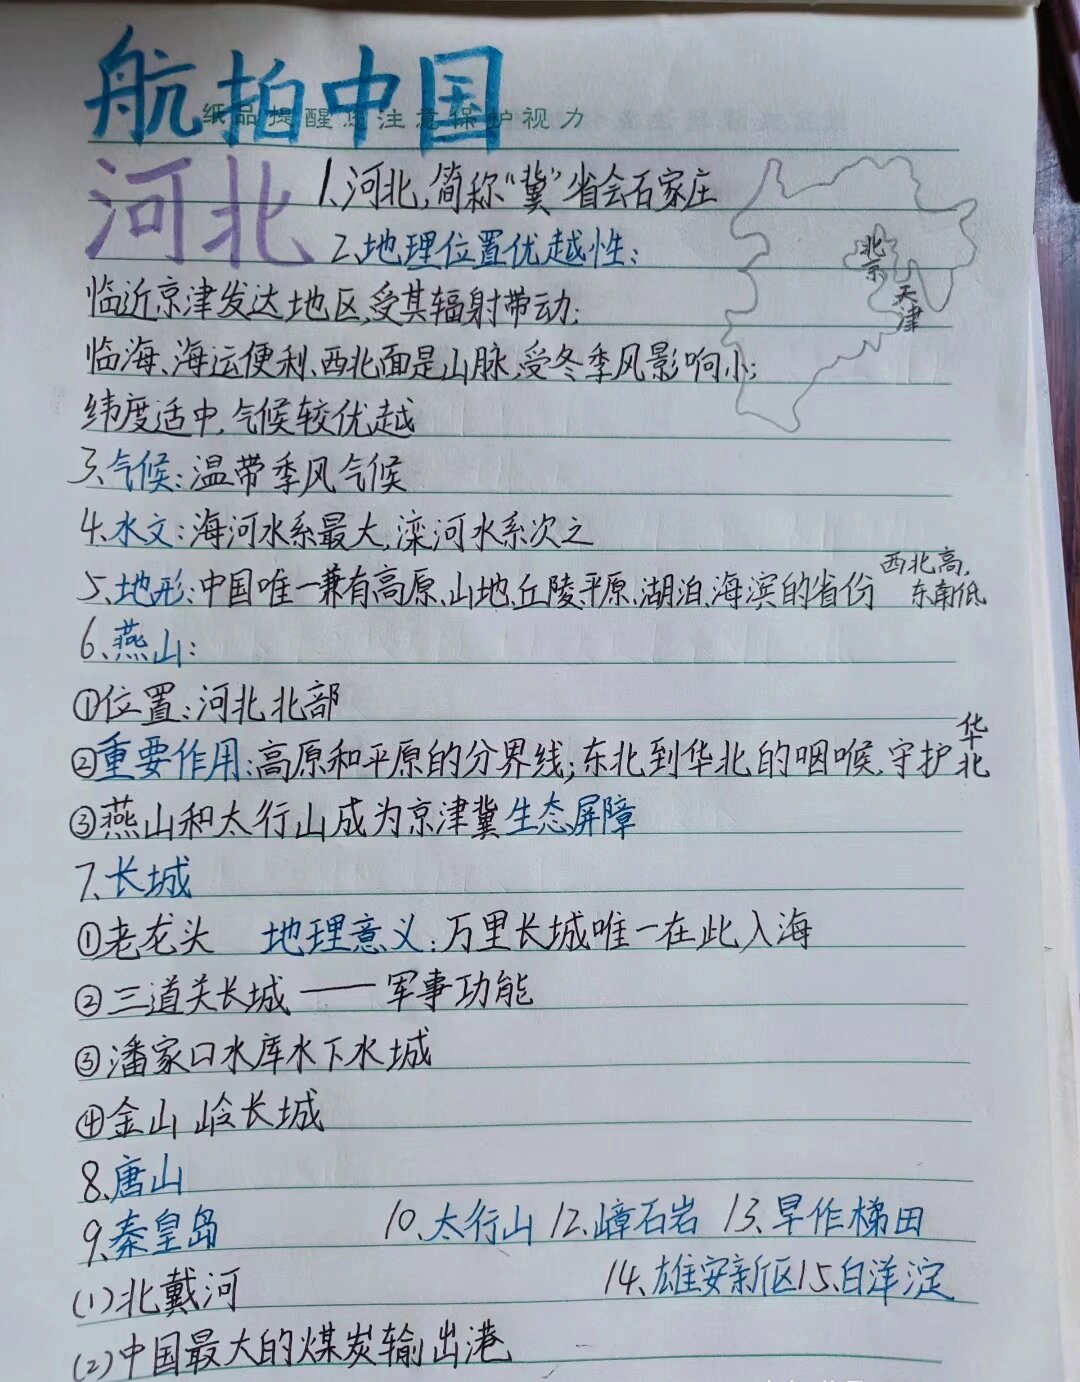 航拍中国
纸品提醒您注意保护视力
河北
1、河北,简称"冀"省会石家庄
2、地理位置优越性:
北京
天津
临近京津发达地区,受其辐射带动;
临海、海运便利、西北面是山脉,受冬季风影响小;
纬度适中,气候较优越
3、气候:温带季风气候
4、水文:海河水系最大,滦河水系次之
5、地形:中国唯一兼有高原、山地、丘陵、平原、湖泊、海滨的省份 西北高,
东南低
6、燕山:
①位置:河北北部
②重要作用:高原和平原的分界线;东北到华北的咽喉,守护华北
③燕山和太行山成为京津冀生态屏障
7、长城
①老龙头 地理意义:万里长城唯一在此入海
②三道关长城——军事功能
③潘家口水库水下水城
④金山岭长城
8、唐山
9、秦皇岛 10、太行山 12、嶂石岩 13、旱作梯田
(1)北戴河 14、雄安新区 15、白洋淀
(2)中国最大的煤炭输出港